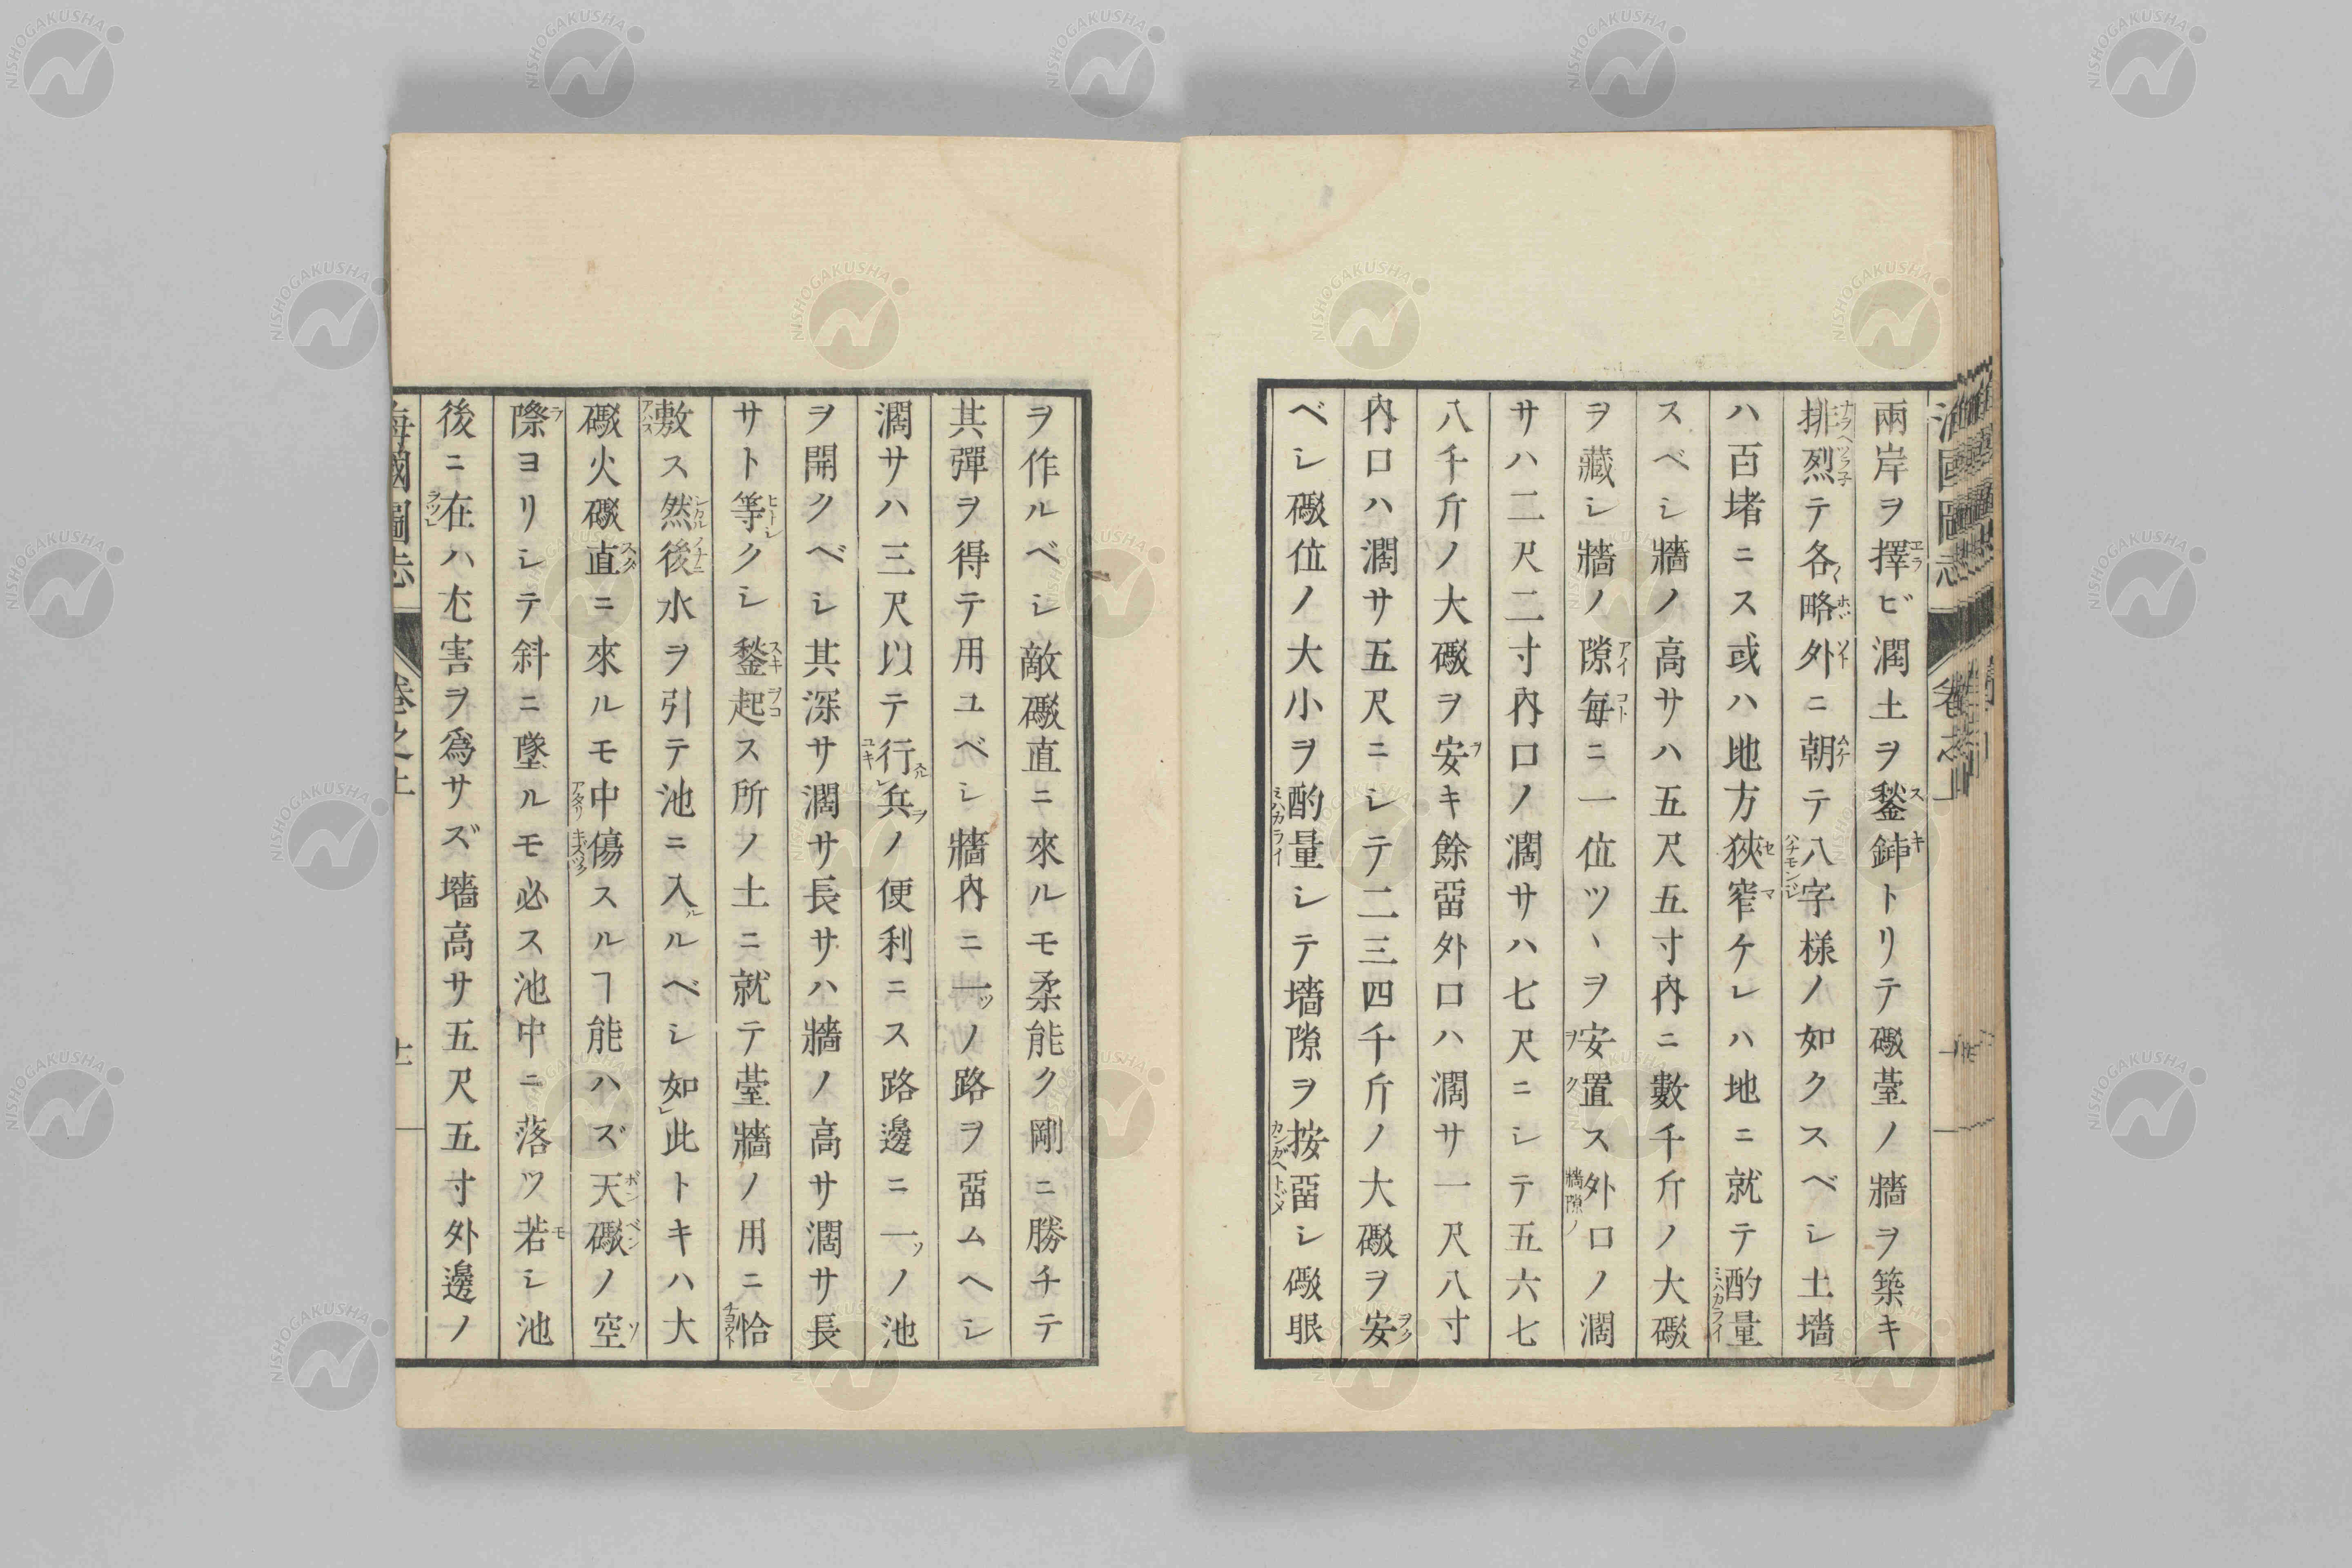 兩岸ヲ擇ビ濶土ヲ鍫鍤トリテ礮臺ノ牆ヲ築キ
排烈テ各略外ニ朝テ八字様ノ如クスベシ土墻
ハ百堵ニス或ハ地方狹窄ケレハ地ニ就テ酌量
スベシ牆ノ高サハ五尺五寸內ニ數千斤ノ大礮
ヲ藏シ牆ノ隙每ニ一位ツヽヲ安置ス外口ノ濶
サハ二尺二寸內口ノ濶サハ七尺ニシテ五六七
八千斤ノ大礮ヲ安キ餘畱外口ハ濶サ一尺八寸
內口ハ濶サ五尺ニシテ二三四千斤ノ大礮ヲ安
ベシ礮位ノ大小ヲ酌量シテ墻隙ヲ按畱シ礮眼
ヲ作ルベシ敵礮直ニ來ルモ柔能ク剛ニ勝チテ
其彈ヲ得テ用ユベシ牆內ニ一ツノ路ヲ畱ムヘシ
濶サハ三尺以テ行兵ノ便利ニス路邊ニ一ツノ池
ヲ開クベシ其深サ濶サ長サハ牆ノ高サ濶サ長
サト等クシ鍫起ス所ノ土ニ就テ臺牆ノ用ニ恰
敷ス然後水ヲ引テ池ニ入ルベシ如此トキハ大
礮火礮直ニ來ルモ中傷スルヿ能ハズ天礮ノ空
際ヨリシテ斜ニ墜ルモ必ス池中ニ落ツ若シ池
後ニ在ハ尢害ヲ爲サズ墻高サ五尺五寸外邊ノ
海國圖志 卷之上
NISHOGAKUSHA